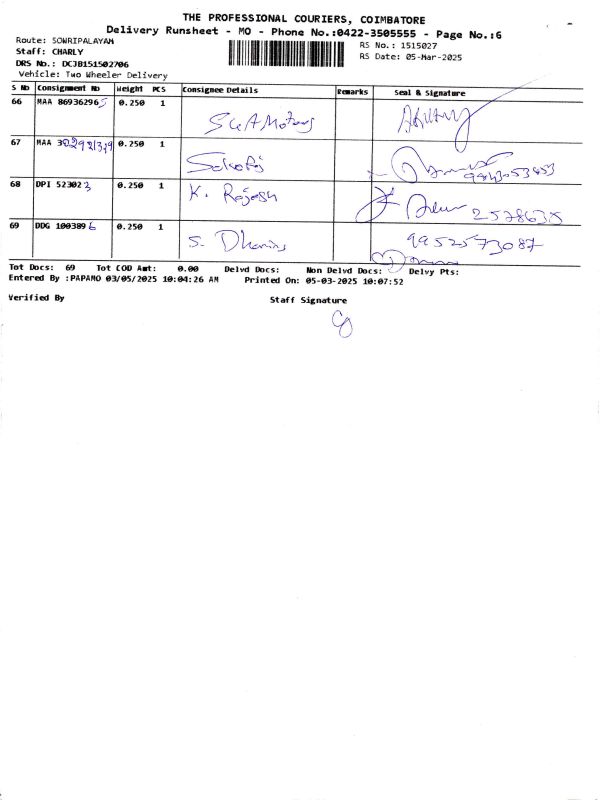 THE PROFESSIONAL COURIERS, COIMBATORE
Delivery Runsheet - MO - Phone No.:0422-3505555 - Page No.:6
Route: SOWRIPALAYAM
RS No.: 1515027
Staff: CHARLY
RS Date: 05-Mar-2025
DRS No.: DCJB151502706
Vehicle: Two Wheeler Delivery
S No Consignment No Weight PCS Consignee Details Remarks Seal & Signature
66 MAA 869362965 0.250 1
67 MAA 0.250 1
9943053453
68 DPI 523023 0.250 1 K. Rajesh
69 DDG 1003896 0.250 1 S. 9952573087
Tot Docs: 69 Tot COD Amt: 0.00 Delvd Docs: Non Delvd Docs: Delvy Pts:
Entered By :PAPAMO 03/05/2025 10:04:26 AM Printed On: 05-03-2025 10:07:52
Verified By Staff Signature